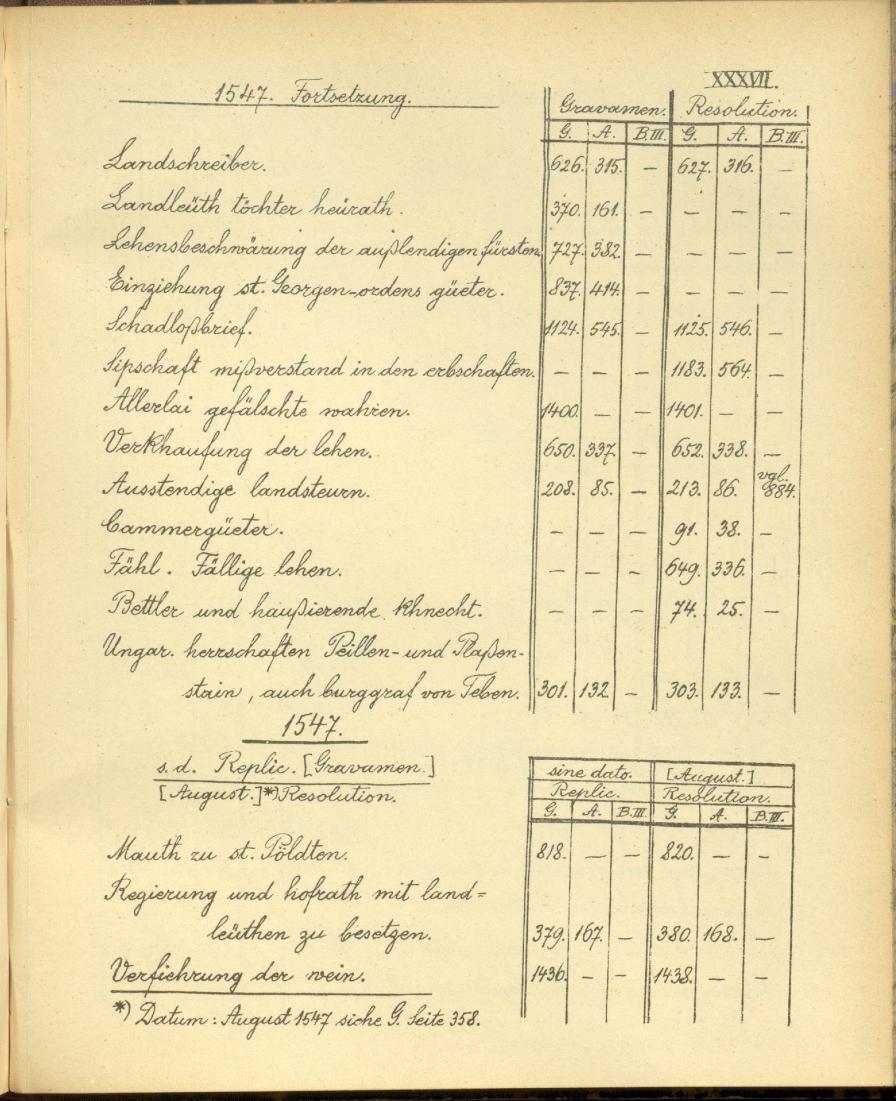 XXXVII.
1547. Fortsetzung.
Gravamen. Resolution.
G. A. B.III. G. A. B.III.
Landschreiber. 626. 315. — 627. 316. —
Landleüth töchter heürath. 370. 161. — — — —
Lehensbeschwärung der außlendigen fürsten. 727. 382. — — — —
Einziehung st. Georgen-ordens güeter. 837. 414. — — — —
Schadloßbrief. 1124. 545. — 1125. 546. —
Sipschaft mißverstand in den erbschaften. — — — 1183. 564. —
Allerlai gefälschte wahren. 1400. — — 1401. — —
Verkhaufung der lehen. 650. 337. — 652. 338. —
Ausstendige landsteurn. 208. 85. — 213. 86. vgl. 884.
Cammergüeter. — — — 91. 38. —
Fähl. Fällige lehen. — — — 649. 336. —
Bettler und haußierende khnecht. — — — 74. 25. —
Ungar. herrschaften Peillen- und Plaßen-
stain, auch burggraf von Teben. 301. 132. — 303. 133. —
1547.
s. d. Replic. [Gravamen.]
[August.]*) Resolution.
sine dato. [August.]
Replic. Resolution.
G. A. B.III. G. A. B.III.
Mauth zu st. Pöldten. 818. — — 820. — —
Regierung und hofrath mit land=
leüthen zu besetzen. 379. 167. — 380. 168. —
Verfiehrung der wein. 1436. — — 1438. — —
*) Datum: August 1547 siche G. Seite 358.